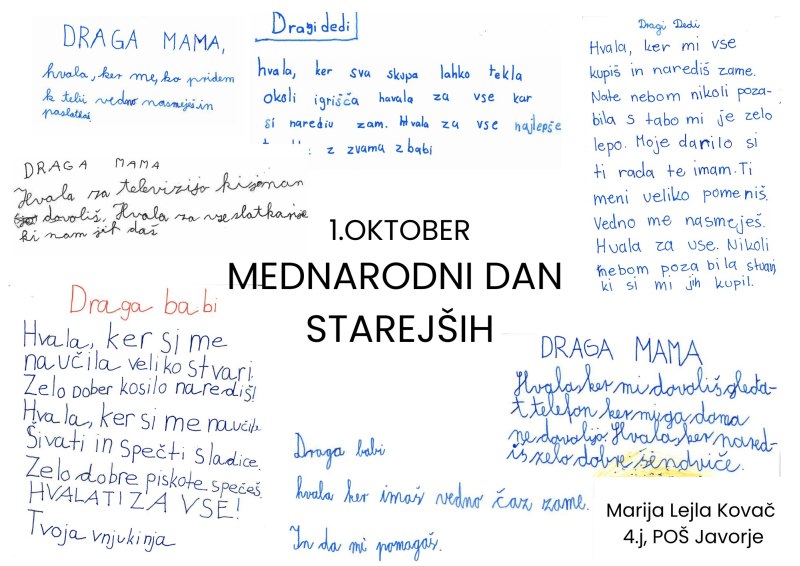 DRAGA MAMA,
hvala, ker me, ko pridem
k tebi vedno nasmeješ in
Dragi dedi
hvala, ker sva skupa lahko tekla
okoli igrišča havala za vse kar
si narediu zam. Hvala za vse najlepše
z zvama z babi
Dragi Dedi
Hvala, ker mi vse
kupiš in narediš zame.
Nate nebom nikoli poza-
bila s tabo mi je zelo
lepo. Moje darilo si
ti rada te imam. Ti
meni veliko pomeniš.
Vedno me nasmeješ.
Hvala za vse. Nikoli
nebom poza bila stvari
ki si mi jih kupil.
DRAGA MAMA
Hvala za televizijo ki
dovoliš. Hvala za vse
ki nam jih daš
1.OKTOBER
MEDNARODNI DAN
STAREJŠIH
Draga babi
Hvala, ker si me
naučila veliko stvari.
Zelo Dober kosilo narediš!
Hvala, ker si me naučila
Šivati in spečti sladice.
Zelo dobre piskote spečeš.
HVALA TI ZA VSE!
Tvoja vnjukinja
DRAGA MAMA
Hvala ker mi dovoliš gleda-
t telefon ker mi ga doma
ne dovolijo. Hvala ker nared-
iš zelo dobre sendviče.
Draga babi
hvala ker imaš vedno čaz zame.
In da mi pomagaš.
Marija Lejla Kovač
4.j, POŠ Javorje